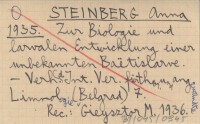 O STEINBERG Anna
1935. Zur Biologie und
larvalen Entwicklung einer
unbekannten Baëtislarve.
- Verh. Int. Ver. theor. u. ang.
Limnol. (Belgrad) 7.
Rec.: Gieysztor M. 1936.